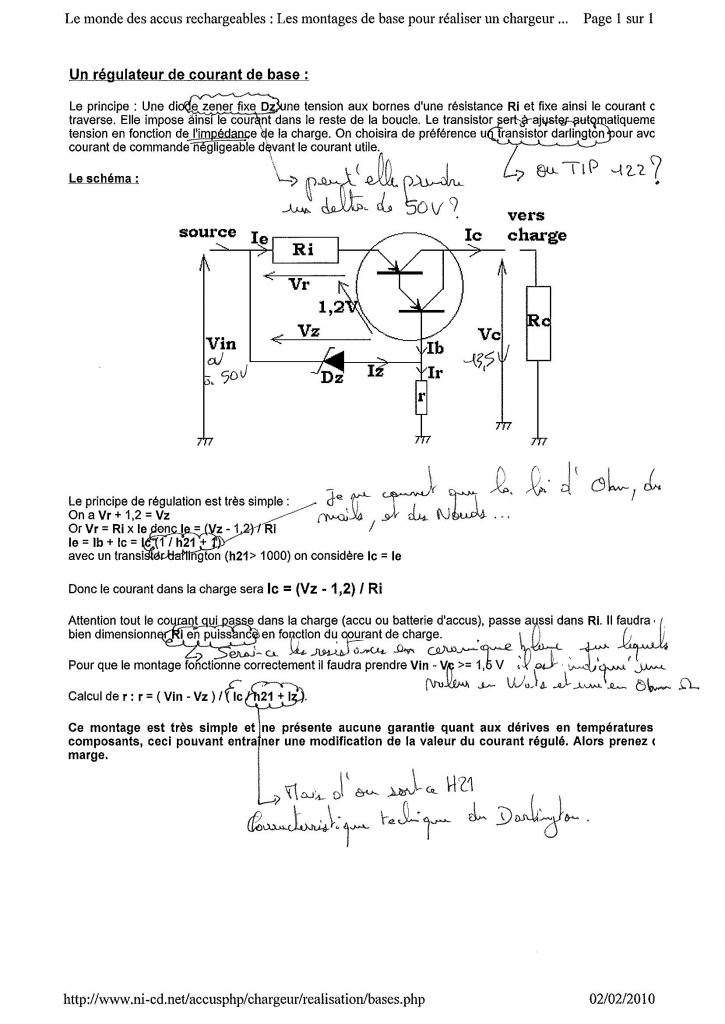 Le monde des accus rechargeables : Les montages de base pour réaliser un chargeur ... Page 1 sur 1
Un régulateur de courant de base :
Le principe : Une diode zener fixe Dz une tension aux bornes d'une résistance Ri et fixe ainsi le courant c
traverse. Elle impose ainsi le courant dans le reste de la boucle. Le transistor sert à ajuster automatiqueme
tension en fonction de l'impédance de la charge. On choisira de préférence un transistor darlington pour avo
courant de commande négligeable devant le courant utile.
Le schéma :
peut'elle prendre
un delta de 50V?
ou TIP 122?
source
Ie
Ri
Ic
vers
charge
Vr
1,2V
Vz
Vin
50V
Dz
Iz
Ib
Ir
r
Vc
13,5V
Rc
Le principe de régulation est très simple :
On a Vr + 1,2 = Vz
Or Vr = Ri x Ie donc Ie = (Vz - 1,2) / Ri
Ie = Ib + Ic = Ic (1 / h21 + 1)
avec un transistor darlington (h21> 1000) on considère Ic = Ie
Je ne connait que la loi d' Ohm, des
mails, et des Nœuds...
Donc le courant dans la charge sera Ic = (Vz - 1,2) / Ri
Attention tout le courant qui passe dans la charge (accu ou batterie d'accus), passe aussi dans Ri. Il faudra
bien dimensionner Ri en puissance en fonction du courant de charge.
Serai-ce les resistances en ceramique blanc sur lequels
Pour que le montage fonctionne correctement il faudra prendre Vin - Vc >= 1,5 V
il est indiqué une
valeur en Wats et une en Ohm Ω
Calcul de r : r = ( Vin - Vz ) / ( Ic / h21 + Iz ).
Ce montage est très simple et ne présente aucune garantie quant aux dérives en températures
composants, ceci pouvant entraîner une modification de la valeur du courant régulé. Alors prenez c
marge.
Mais d'ou sort ce H21
Caracteristique technique du Darlington.
http://www.ni-cd.net/accusphp/chargeur/realisation/bases.php 02/02/2010